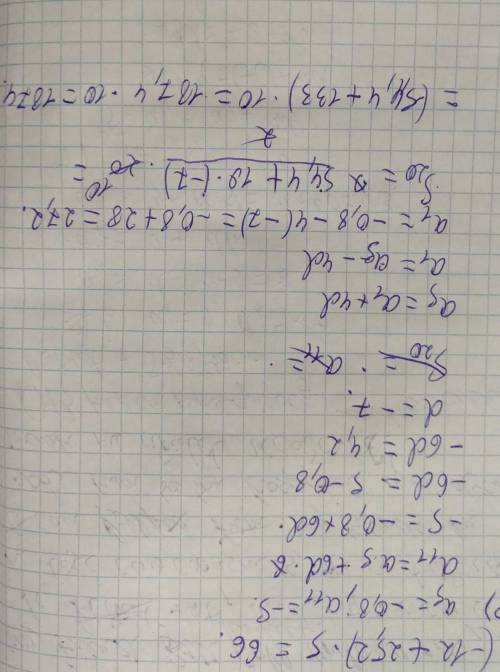 (-12 + 25,2) · 5 = 66
a₅ = -0,8; a₁₁ = -5.
a₁₁ = a₅ + 6d.
-5 = -0,8 + 6d.
-6d = 5 - 0,8
-6d = 4,2
d = -7
a₅ = a₁ + 4d
a₁ = a₅ - 4d
a₁ = -0,8 - 4(-7) = -0,8 + 28 = 27,2.
S₂₀ = 54,4 + 19 · (-7) / 2 · 20 10 =
= (54,4 + 133) · 10 = 187,4 · 10 = 1874.